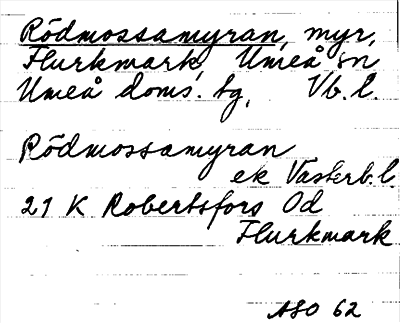 Rödmossamyran, myr,
Flurkmark, Umeå sn
Umeå doms. tg, Vb. l.
Rödmossamyran
ek Västerb. l.
21 K Robertsfors Od
Flurkmark
ASO 62